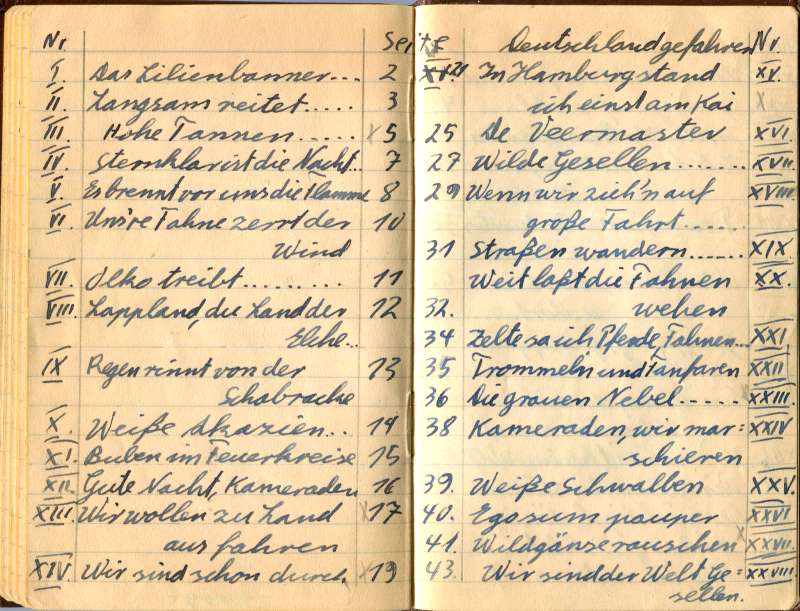 Nr. Seite
I. Das Lilienbanner... 2
II. Langsam reitet..... 3
III. Hohe Tannen..... x5
IV. Sternklar ist die Nacht... 7
V. Es brennt vor uns die Flamme 8
VI. Uns're Fahne zerrt der 10
Wind
VII. Olko treibt.......... 11
VIII. Lappland, du Land der 12
Elche...
IX Regen rinnt von der 13
Schabracke
X. Weiße Akazien... 14
XI. Buben im Feuerkreise 15
XII. Gute Nacht, Kameraden 16
XIII. Wir wollen zu Land x17
ausfahren
XIV. Wir sind schon durch x19
Deutschland gefahren Nr.
21 In Hamburg stand XV.
ich einst am Kai x
25 De Veermaster XVI.
27 Wilde Gesellen....... XVII.
29 Wenn wir zieh'n auf XVIII.
große Fahrt......
31 Straßen wandern...... XIX.
Weit laßt die Fahnen XX.
32. wehen
34 Zelte sah ich Pferde, Fahnen... XXI
35 Trommeln und Fanfaren XXII
36 Die grauen Nebel..... XXIII.
38 Kameraden, wir mar= XXIV
schieren
39. Weiße Schwalben XXV.
40. Ego sum pauper XXVI
41. Wildgänse rauschen x XXVII.
43. Wir sind der Welt Ge= XXVIII
sellen.